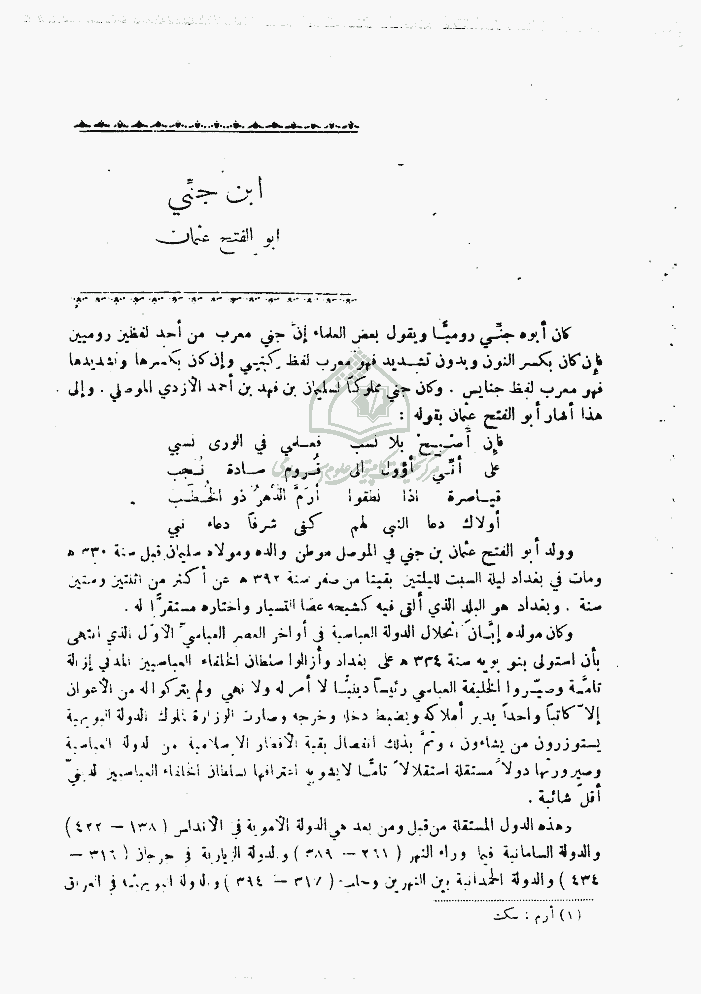 ابن جنّي
ابو الفتح عثمان
كان أبوه جنّي روميًّا ويقول بعض العلماء إنّ جني معرب من أحد لفظين روميين
فإن كان بكسر النون وبدون تشديد فهو معرب لفظ كيتيى وإن كان بكسرها وتشديدها
فهو معرب لفظ جنايس . وكان جني مملوكاً لسليمان بن فهد بن أحمد الأزدي الموصلي . وإلى
هذا أشار أبو الفتح عثمان بقوله :
فإن أصبح بلا نسب فعلمي في الورى نسبي
على أنّي أؤول الى قُروم سادة نُجب
قياصرة اذا نطقوا أرَمَّ الدَّهرُ ذو الخُطَب
أولاك دعا النبي لهم كفى شرفاً دعاء نبي
وولد أبو الفتح عثمان بن جني في الموصل موطن والده ومولاه سليمان قبل سنة ٣٣٠ ه
ومات في بغداد ليلة السبت لليلتين بقيتا من صفر سنة ٣٩٢ ه عن أكثر من اثنتين وستين
سنة . وبغداد هو البلد الذي ألقى فيه كشيحه عصا التسيار واختاره مستقرًّا له .
وكان مولده إبّان انحلال الدولة العباسية في أواخر العصر العباسي الأوّل الذي انتهى
بأن استولى بنو بويه سنة ٣٣٤ ه على بغداد وأزالوا سلطان الخلفاء العباسيين المدني إزالة
تامّة وصيّروا الخليفة العباسي رئيساً دينيًّا لا أمر له ولا نهي ولم يتركوا له من الأعوان
إلاّ كاتباً واحداً يدير أملاكه ويضبط دخله وخرجه وصارت الوزارة لملوك الدولة البويهية
يستوزرون من يشاءون ، وتمّ بذلك انفصال بقية الأقطار الإسلامية من لدولة العباسية
وصيرورتها دولاً مستقلة استقلالاً تامًّا لا يشوبه اعترافها بسلطان الخلفاء العباسيين لدينيّ
أقلّ شائبة .
وهذه الدول المستقلة من قبل ومن بعد هي الدولة الأموية في الأندلس ( ١٣٨ — ٤٢٢ )
والدولة السامانية فيما وراء النهر ( ٢٦١ — ٣٨٩ ) والدولة الزيارية في جرجان ( ٣١٦ —
٤٣٤ ) والدولة الحمدانية بين النهرين وحلب ( ٣١٧ — ٣٩٤ ) والدولة البويهية في العراق
(١) أرم : سكت